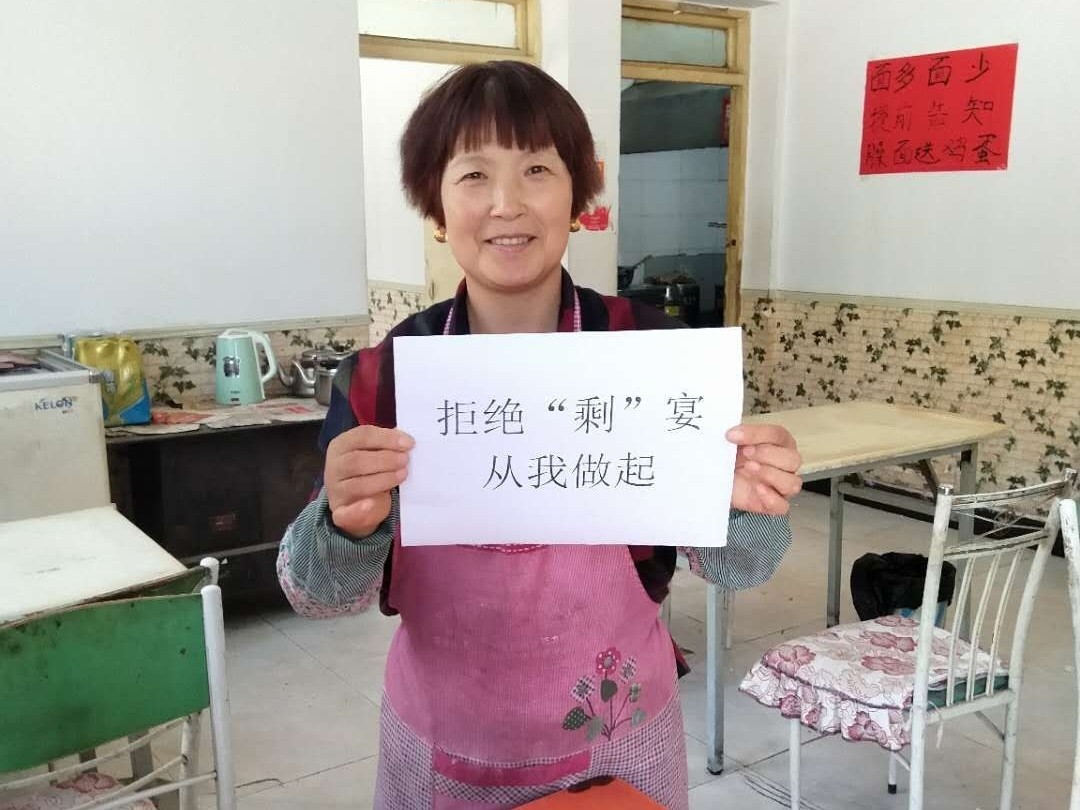 拒绝“剩”宴
从我做起
面多面少
提前告知
臊面送鸡蛋
KELON